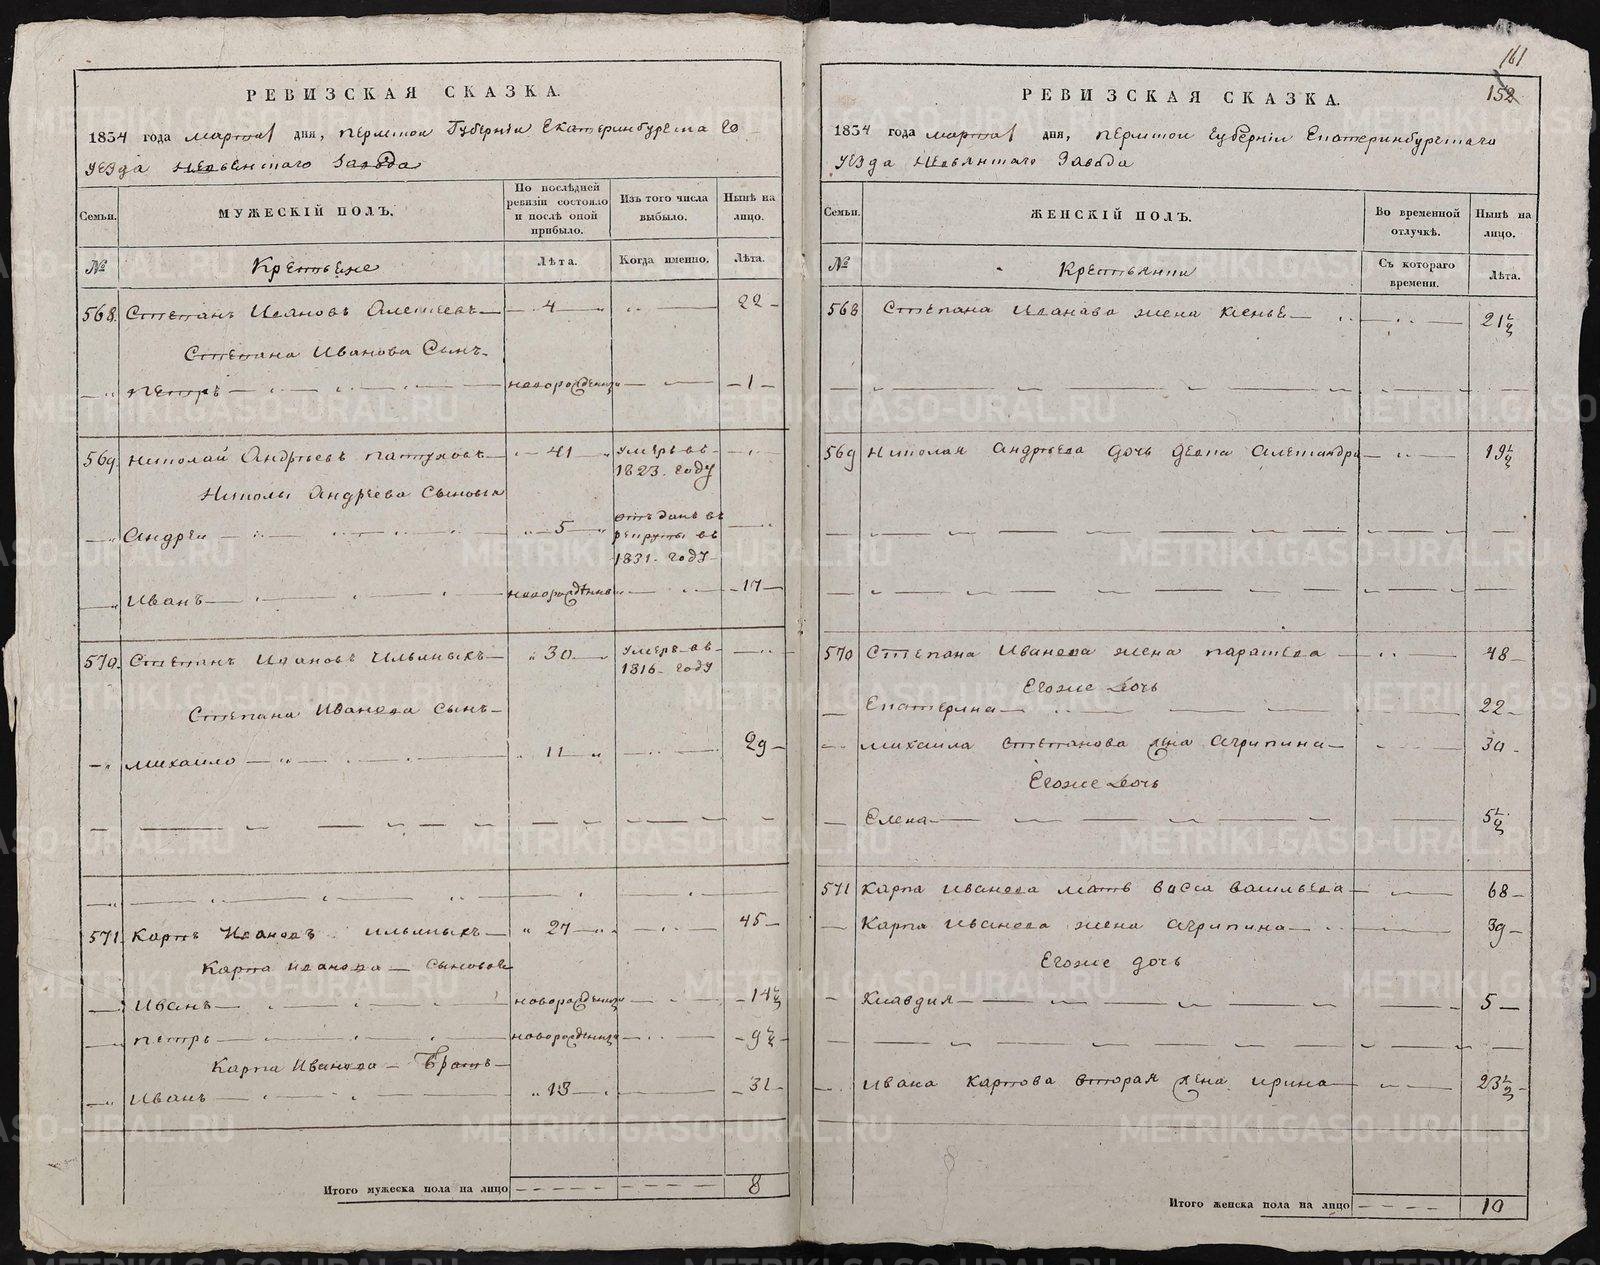 РЕВИЗСКАЯ СКАЗКА.
1834 года марта 1 дня, пермской Губернiи Екатеринбурскаго
уезда Невьенскаго Завода
Семьи.
МУЖЕСКIЙ ПОЛЪ.
По послѣдней ревизiи состояло и послѣ оной прибыло.
Изъ того числа выбыло.
Нынѣ на лицо.
№
Крестьене
Лѣта.
Когда именно.
Лѣта.
568. Степанъ Ивановъ Алексеевъ 4 22
Степана Иванова Сынъ
Петръ новорожденный 1
569. Николай Андреевъ Патруковъ 41 умеръ въ 1823. году
Николы Андреева Сыновья
Андреи 5 отъданъ въ рекруты въ 1831. году
Иванъ новорожденный 17
570. Степанъ Ивановъ Ильиныхъ 30 умеръ въ 1816. году
Степана Иванова сынъ
михаило 11 29
571. Карпъ Ивановъ ильиныхъ 27 45
Карпа иванова сыновья
Иванъ новорожденный 14½
петръ новорожденный 9½
Карпа Иванова Братъ
Иванъ 13 31
Итого мужеска пола на лицо 8
161
152
РЕВИЗСКАЯ СКАЗКА.
1834 года марта 1 дня, пермской губернiи Екатеринбурскаго
уезда Невьянскаго Завода
Семьи.
ЖЕНСКIЙ ПОЛЪ.
Во временной отлучкѣ.
Нынѣ на лицо.
№
Крестьянки
Съ котораго времени.
Лѣта.
568 Степана Иванава жена ксенье 21½
569 Николая андреева дочь девка александра 19½
570 Степана Иванова жена парасева 48
Егоже Дочь
Екатерина 22
михаила степанова жена агрипина 30
Егоже Дочь
Елена 5½
571 Карпа иванова мать васса васильева 68
Карпа иванова жена агрипина 39
Егоже дочь
Клавдия 5
Ивана карпова вторая жена ирина 23½
Итого женска пола на лицо 10
METRIKI.GASO-URAL.RU